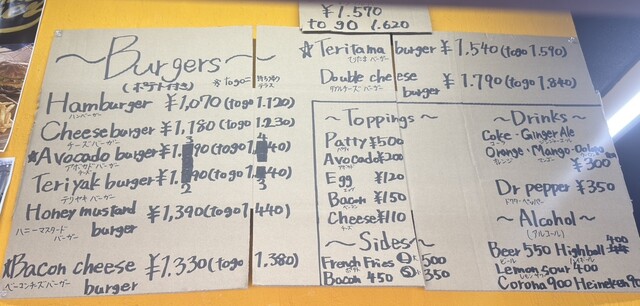 ¥1.570
to go 1.620
~Burgers~
(ポテト付き) ※togo=持ち帰り
テラス
Hamburger ¥1,070 (togo 1.120)
ハンバーガー
Cheeseburger ¥1,180 (togo 1.230)
チーズバーガー
★Avocado burger
アボカドバーガー
Teriyak burger
テリヤキバーガー
Honey mustard burger ¥1,390 (togo 1,440)
ハニーマスタードバーガー
★Bacon cheese burger ¥1.330 (togo 1.380)
ベーコンチーズバーガー
★Teritama burger ¥1,540 (togo 1.590)
てりたまバーガー
Double cheese burger ¥1.790 (togo 1,840)
ダブルチーズバーガー
~Toppings~
Patty ¥500
パティ
Avocado ¥200
アボカド
Egg ¥120
エッグ
Bacon ¥150
ベーコン
Cheese ¥110
チーズ
~Sides~
French Fries Ⓛ 500
Ⓢ 350
Bacon 450
~Drinks~
Coke・Ginger Ale
コーラ ジンジャーエール
Orange・Mango・
オレンジ マンゴー
¥300
Dr pepper ¥350
ドクターペッパー
~Alcohol~
(アルコール)
Beer 550 Highball 400
ビール ハイボール
Lemon sour 400
レモンサワー
Corona 900 Heineken